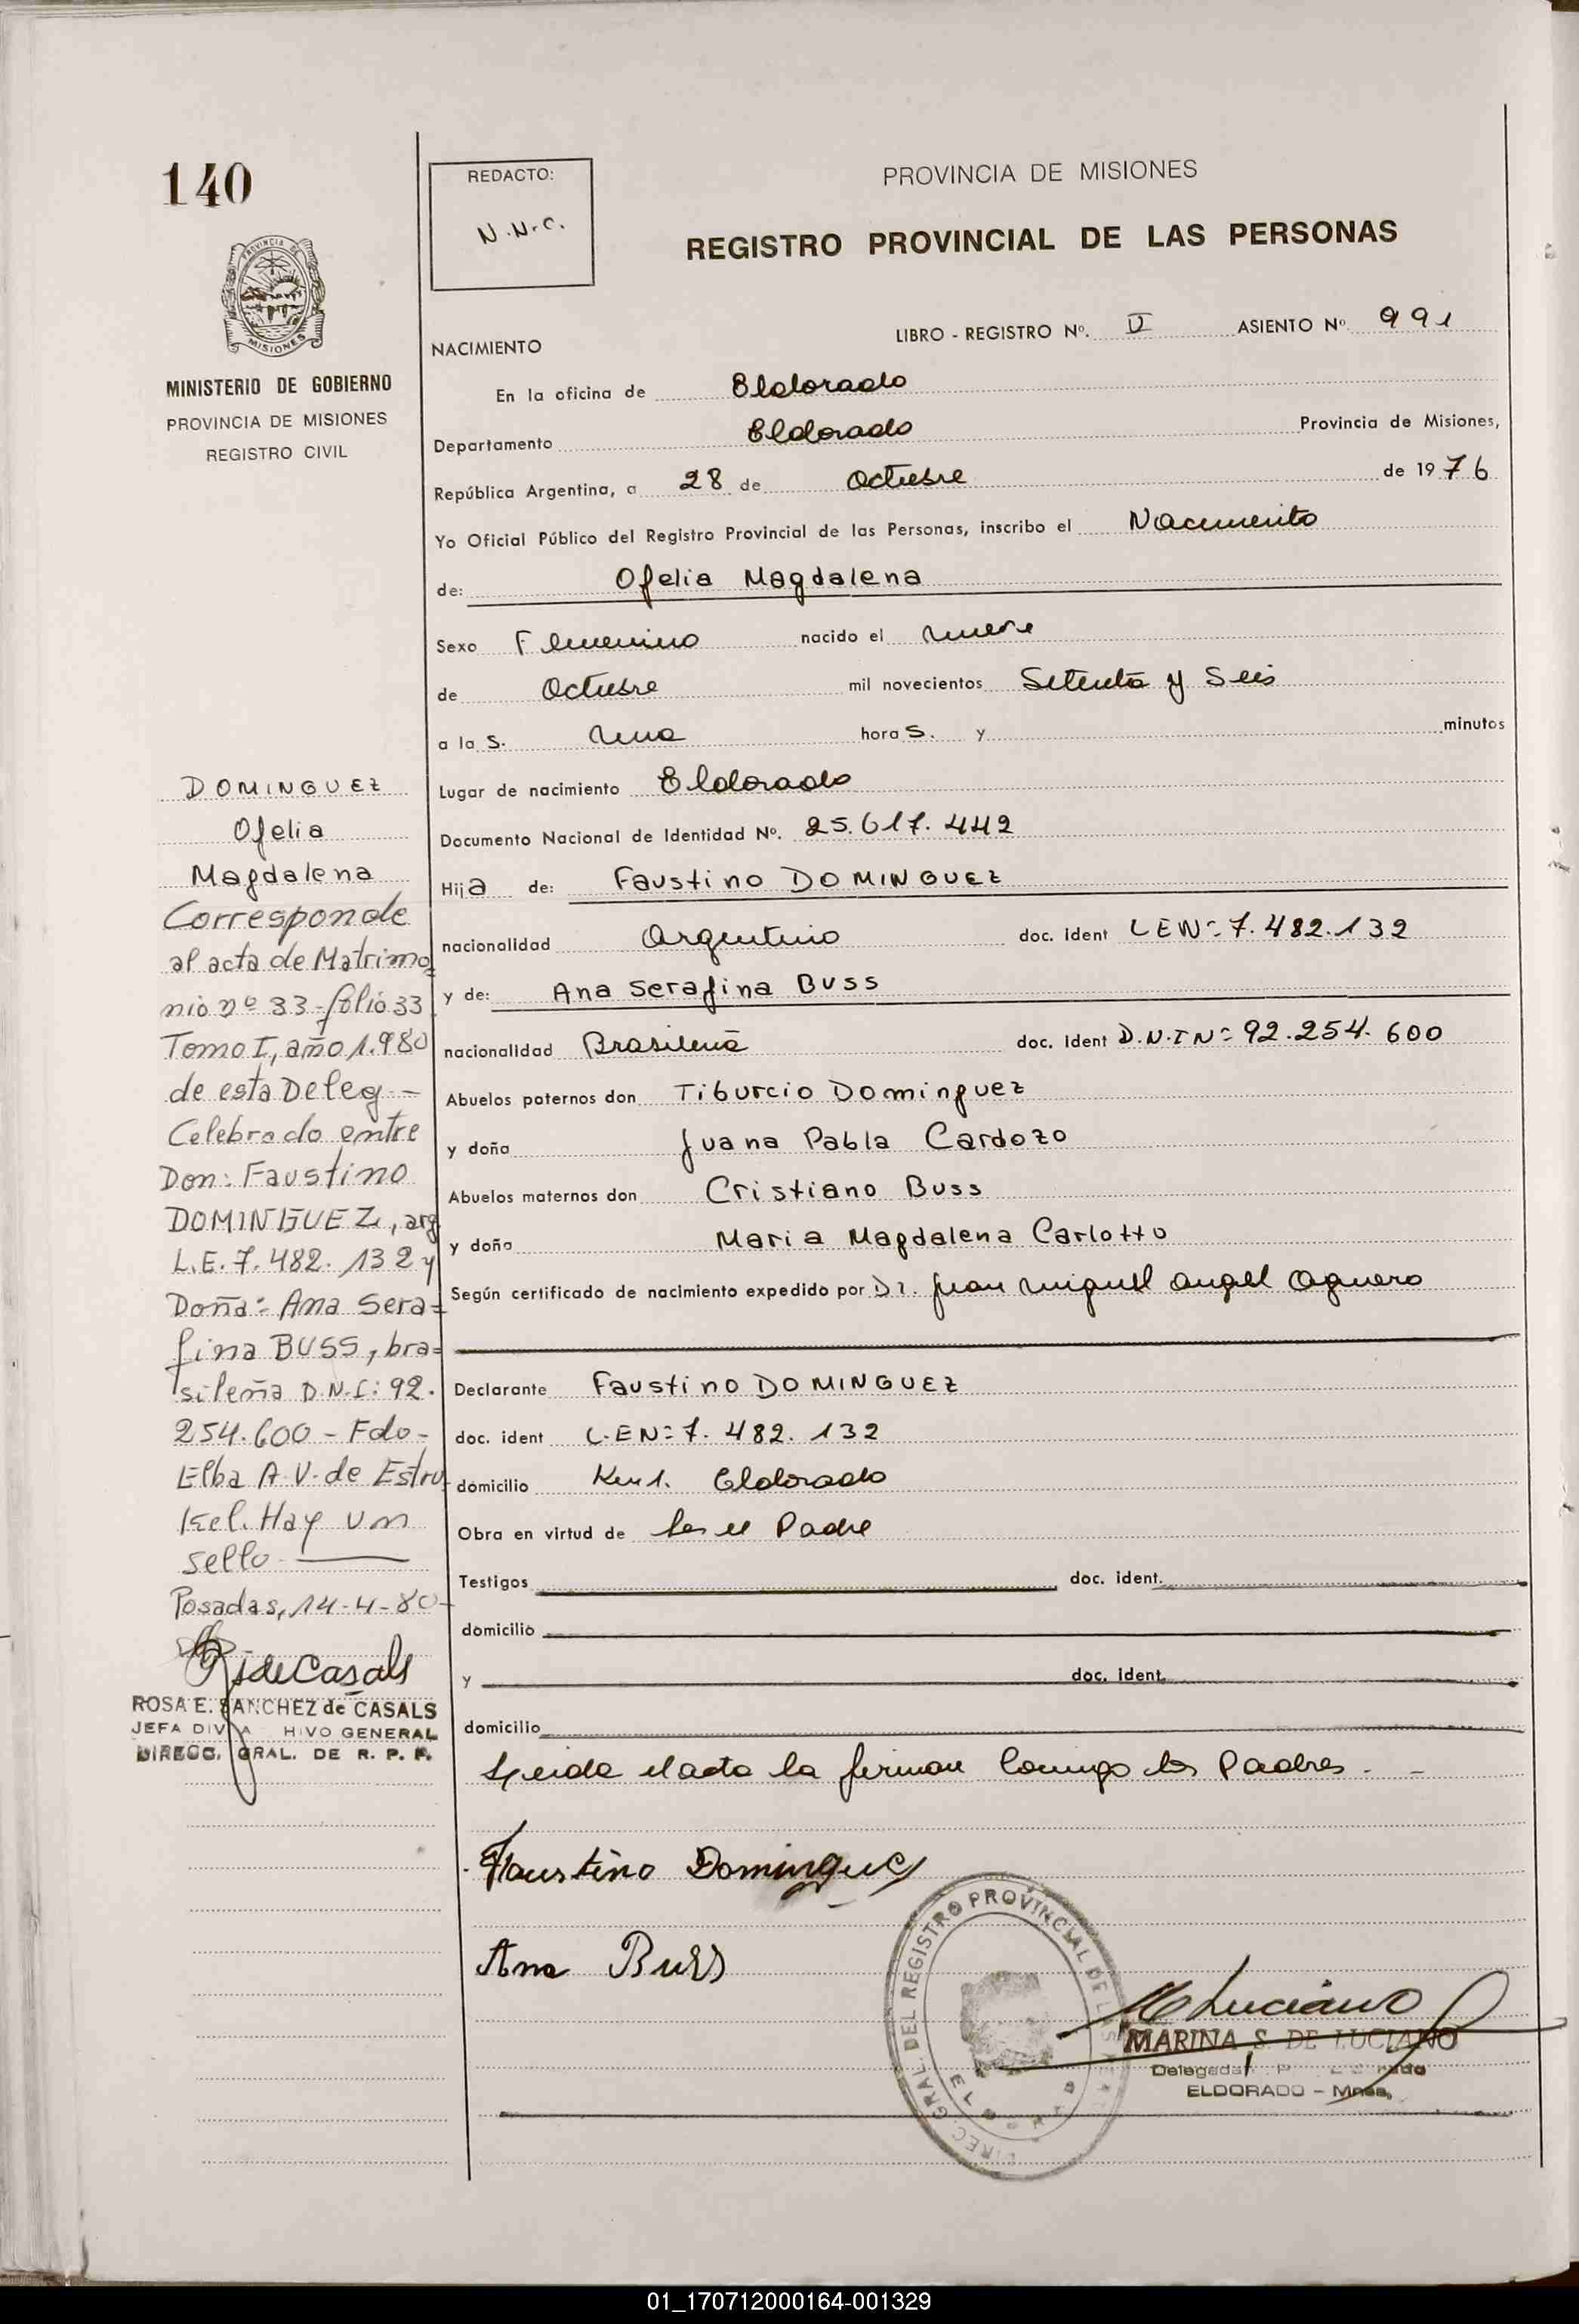 140
PROVINCIA DE MISIONES
MINISTERIO DE GOBIERNO
PROVINCIA DE MISIONES
REGISTRO CIVIL
REDACTO:
N.N.C.
PROVINCIA DE MISIONES
REGISTRO PROVINCIAL DE LAS PERSONAS
LIBRO - REGISTRO Nº. V ASIENTO Nº 991
NACIMIENTO
En la oficina de Eldorado
Departamento Eldorado Provincia de Misiones,
República Argentina, a 28 de Octubre de 1976
Yo Oficial Público del Registro Provincial de las Personas, inscribo el Nacimiento
de: Ofelia Magdalena
Sexo Femenino nacido el nueve
de Octubre mil novecientos Setenta y Seis
a la s. una hora s. y minutos
Lugar de nacimiento Eldorado
Documento Nacional de Identidad Nº. 25.617.442
Hija de: Faustino DOMINGUEZ
nacionalidad Argentino doc. ident LENº 7.482.132
y de: Ana Serafina BUSS
nacionalidad Brasileña doc. ident D.N.I Nº 92.254.600
Abuelos paternos don Tiburcio Dominguez
y doña Juana Pabla Cardozo
Abuelos maternos don Cristiano Buss
y doña Maria Magdalena Carlotto
Según certificado de nacimiento expedido por Dr. Juan Miguel Angel Aguero
Declarante Faustino DOMINGUEZ
doc. ident L.E Nº 7.482.132
domicilio Km 1. Eldorado
Obra en virtud de Ser el Padre
Testigos doc. ident.
domicilio
y doc. ident.
domicilio
Leida el acta la firman conmigo los Padres. -
Faustino Dominguez
Ana Buss
DIREC. GRAL. DEL REGISTRO PROVINCIAL DE LAS
M Luciano
MARINA S. DE LUCIANO
Delegada
ELDORADO - Mnes.
DOMINGUEZ
Ofelia
Magdalena
Corresponde
al acta de Matrimo
nio nº 33 - folio 33
Tomo I, año 1.980
de esta Deleg -
Celebrado entre
Don: Faustino
DOMINGUEZ, arg
L.E. 7.482.132 y
Doña: Ana Sera=
fina BUSS, bra=
sileña D.N.I: 92.
254.600 - Fdo -
Elba A.V. de Estru
kel. Hay un
sello
Posadas, 14-4-80-
R S de Casals
ROSA E. SANCHEZ de CASALS
JEFA DIV A HIVO GENERAL
DIRECC. GRAL. DE R. P. P.
01_170712000164-001329